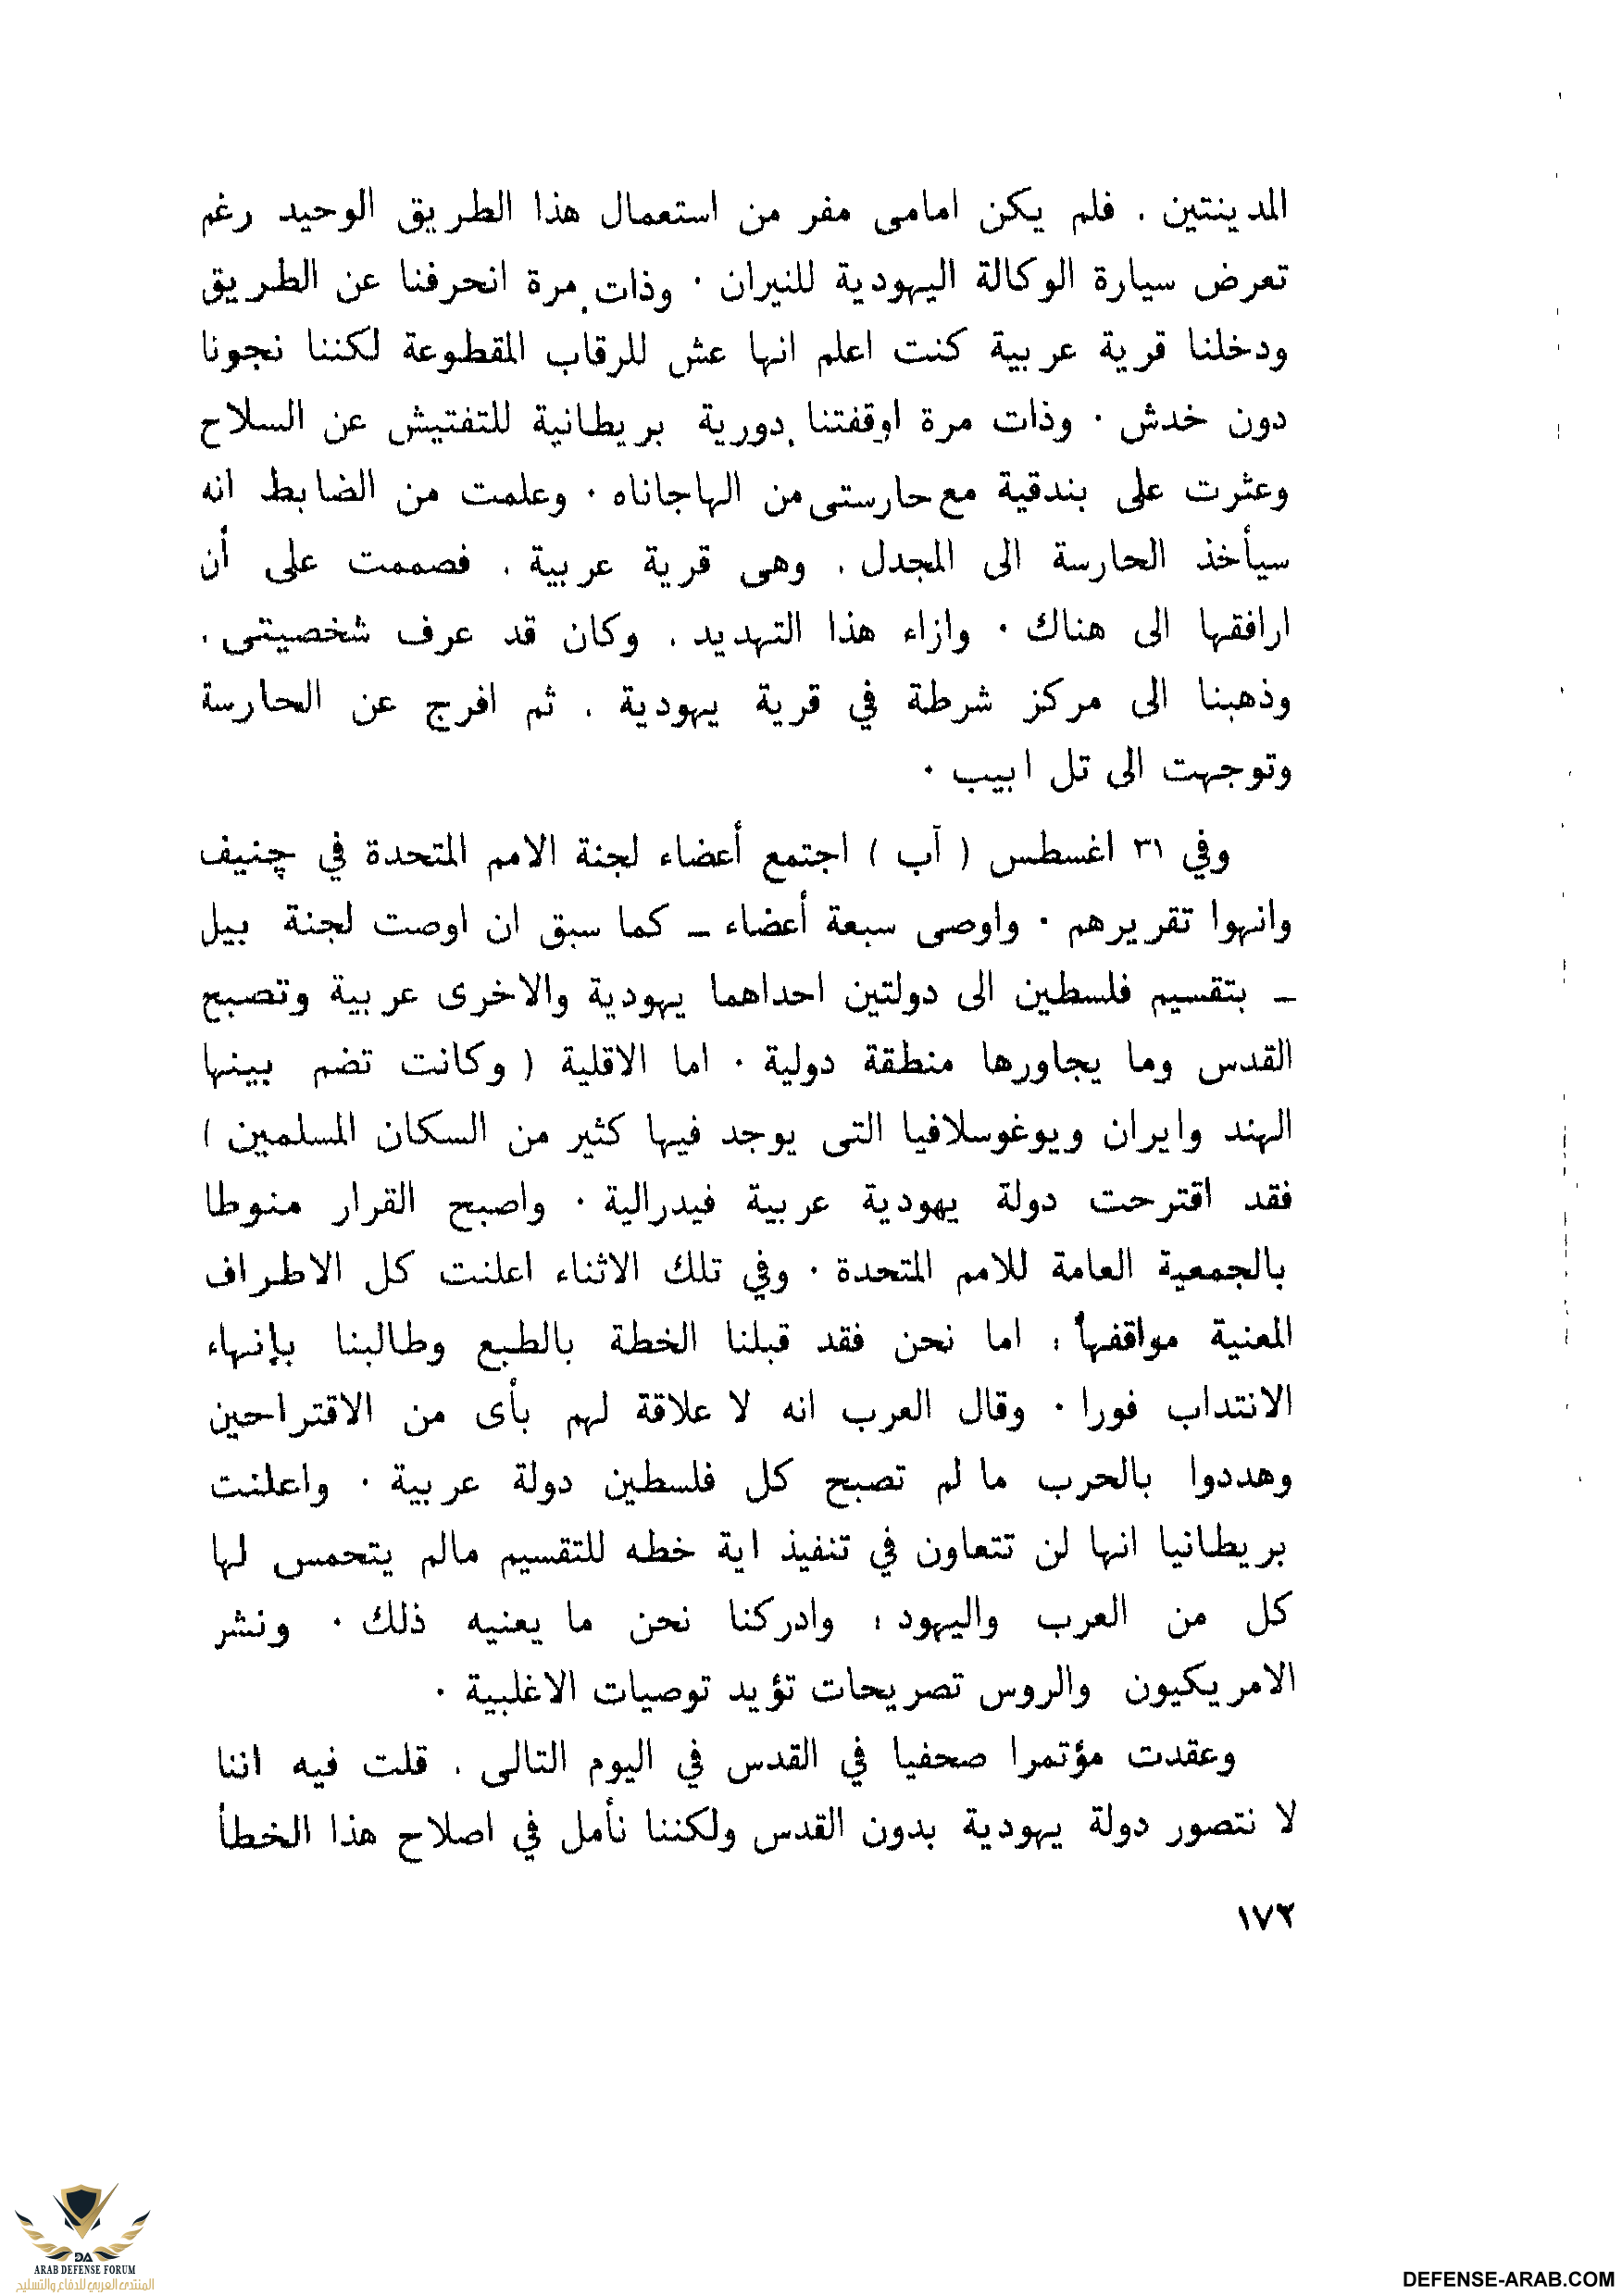 المدينتين . فلم يكن امامى مفر من استعمال هذا الطريق الوحيد رغم
تعرض سيارة الوكالة اليهودية للنيران ٠ وذات مرة انحرفنا عن الطريق
ودخلنا قرية عربية كنت اعلم انها عش للرقاب المقطوعة لكننا نجونا
دون خدش ٠ وذات مرة اوقفتنا دورية بريطانية للتفتيش عن السلاح
وعثرت على بندقية مع حارستى من الهاجاناه ٠ وعلمت من الضابط انه
سيأخذ الحارسة الى المجدل . وهى قرية عربية . فصممت على أن
ارافقها الى هناك ٠ وازاء هذا التهديد . وكان قد عرف شخصيتى .
وذهبنا الى مركز شرطة في قرية يهودية . ثم افرج عن الحارسة
وتوجهت الى تل ابيب ٠
وفي ٣١ اغسطس ( آب ) اجتمع أعضاء لجنة الامم المتحدة في چنيف
وانهوا تقريرهم ٠ واوصى سبعة أعضاء ــ كما سبق ان اوصت لجنة بيل
ــ بتقسيم فلسطين الى دولتين احداهما يهودية والاخرى عربية وتصبح
القدس وما يجاورها منطقة دولية ٠ اما الاقلية ( وكانت تضم بينها
الهند وايران ويوغوسلافيا التى يوجد فيها كثير من السكان المسلمين )
فقد اقترحت دولة يهودية عربية فيدرالية ٠ واصبح القرار منوطا
بالجمعية العامة للامم المتحدة ٠ وفي تلك الاثناء اعلنت كل الاطراف
المعنية مواقفها : اما نحن فقد قبلنا الخطة بالطبع وطالبنا بإنهاء
الانتداب فورا ٠ وقال العرب انه لا علاقة لهم بأى من الاقتراحين
وهددوا بالحرب ما لم تصبح كل فلسطين دولة عربية ٠ واعلنت
بريطانيا انها لن تتعاون في تنفيذ اية خطه للتقسيم مالم يتحمس لها
كل من العرب واليهود : وادركنا نحن ما يعنيه ذلك ٠ ونشر
الامريكيون والروس تصريحات تؤيد توصيات الاغلبية ٠
وعقدت مؤتمرا صحفيا في القدس في اليوم التالى . قلت فيه اننا
لا نتصور دولة يهودية بدون القدس ولكننا نأمل في اصلاح هذا الخطأ
١٧٣
DA
ARAB DEFENSE FORUM
المنتدى العربي للدفاع والتسليح
DEFENSE-ARAB.COM